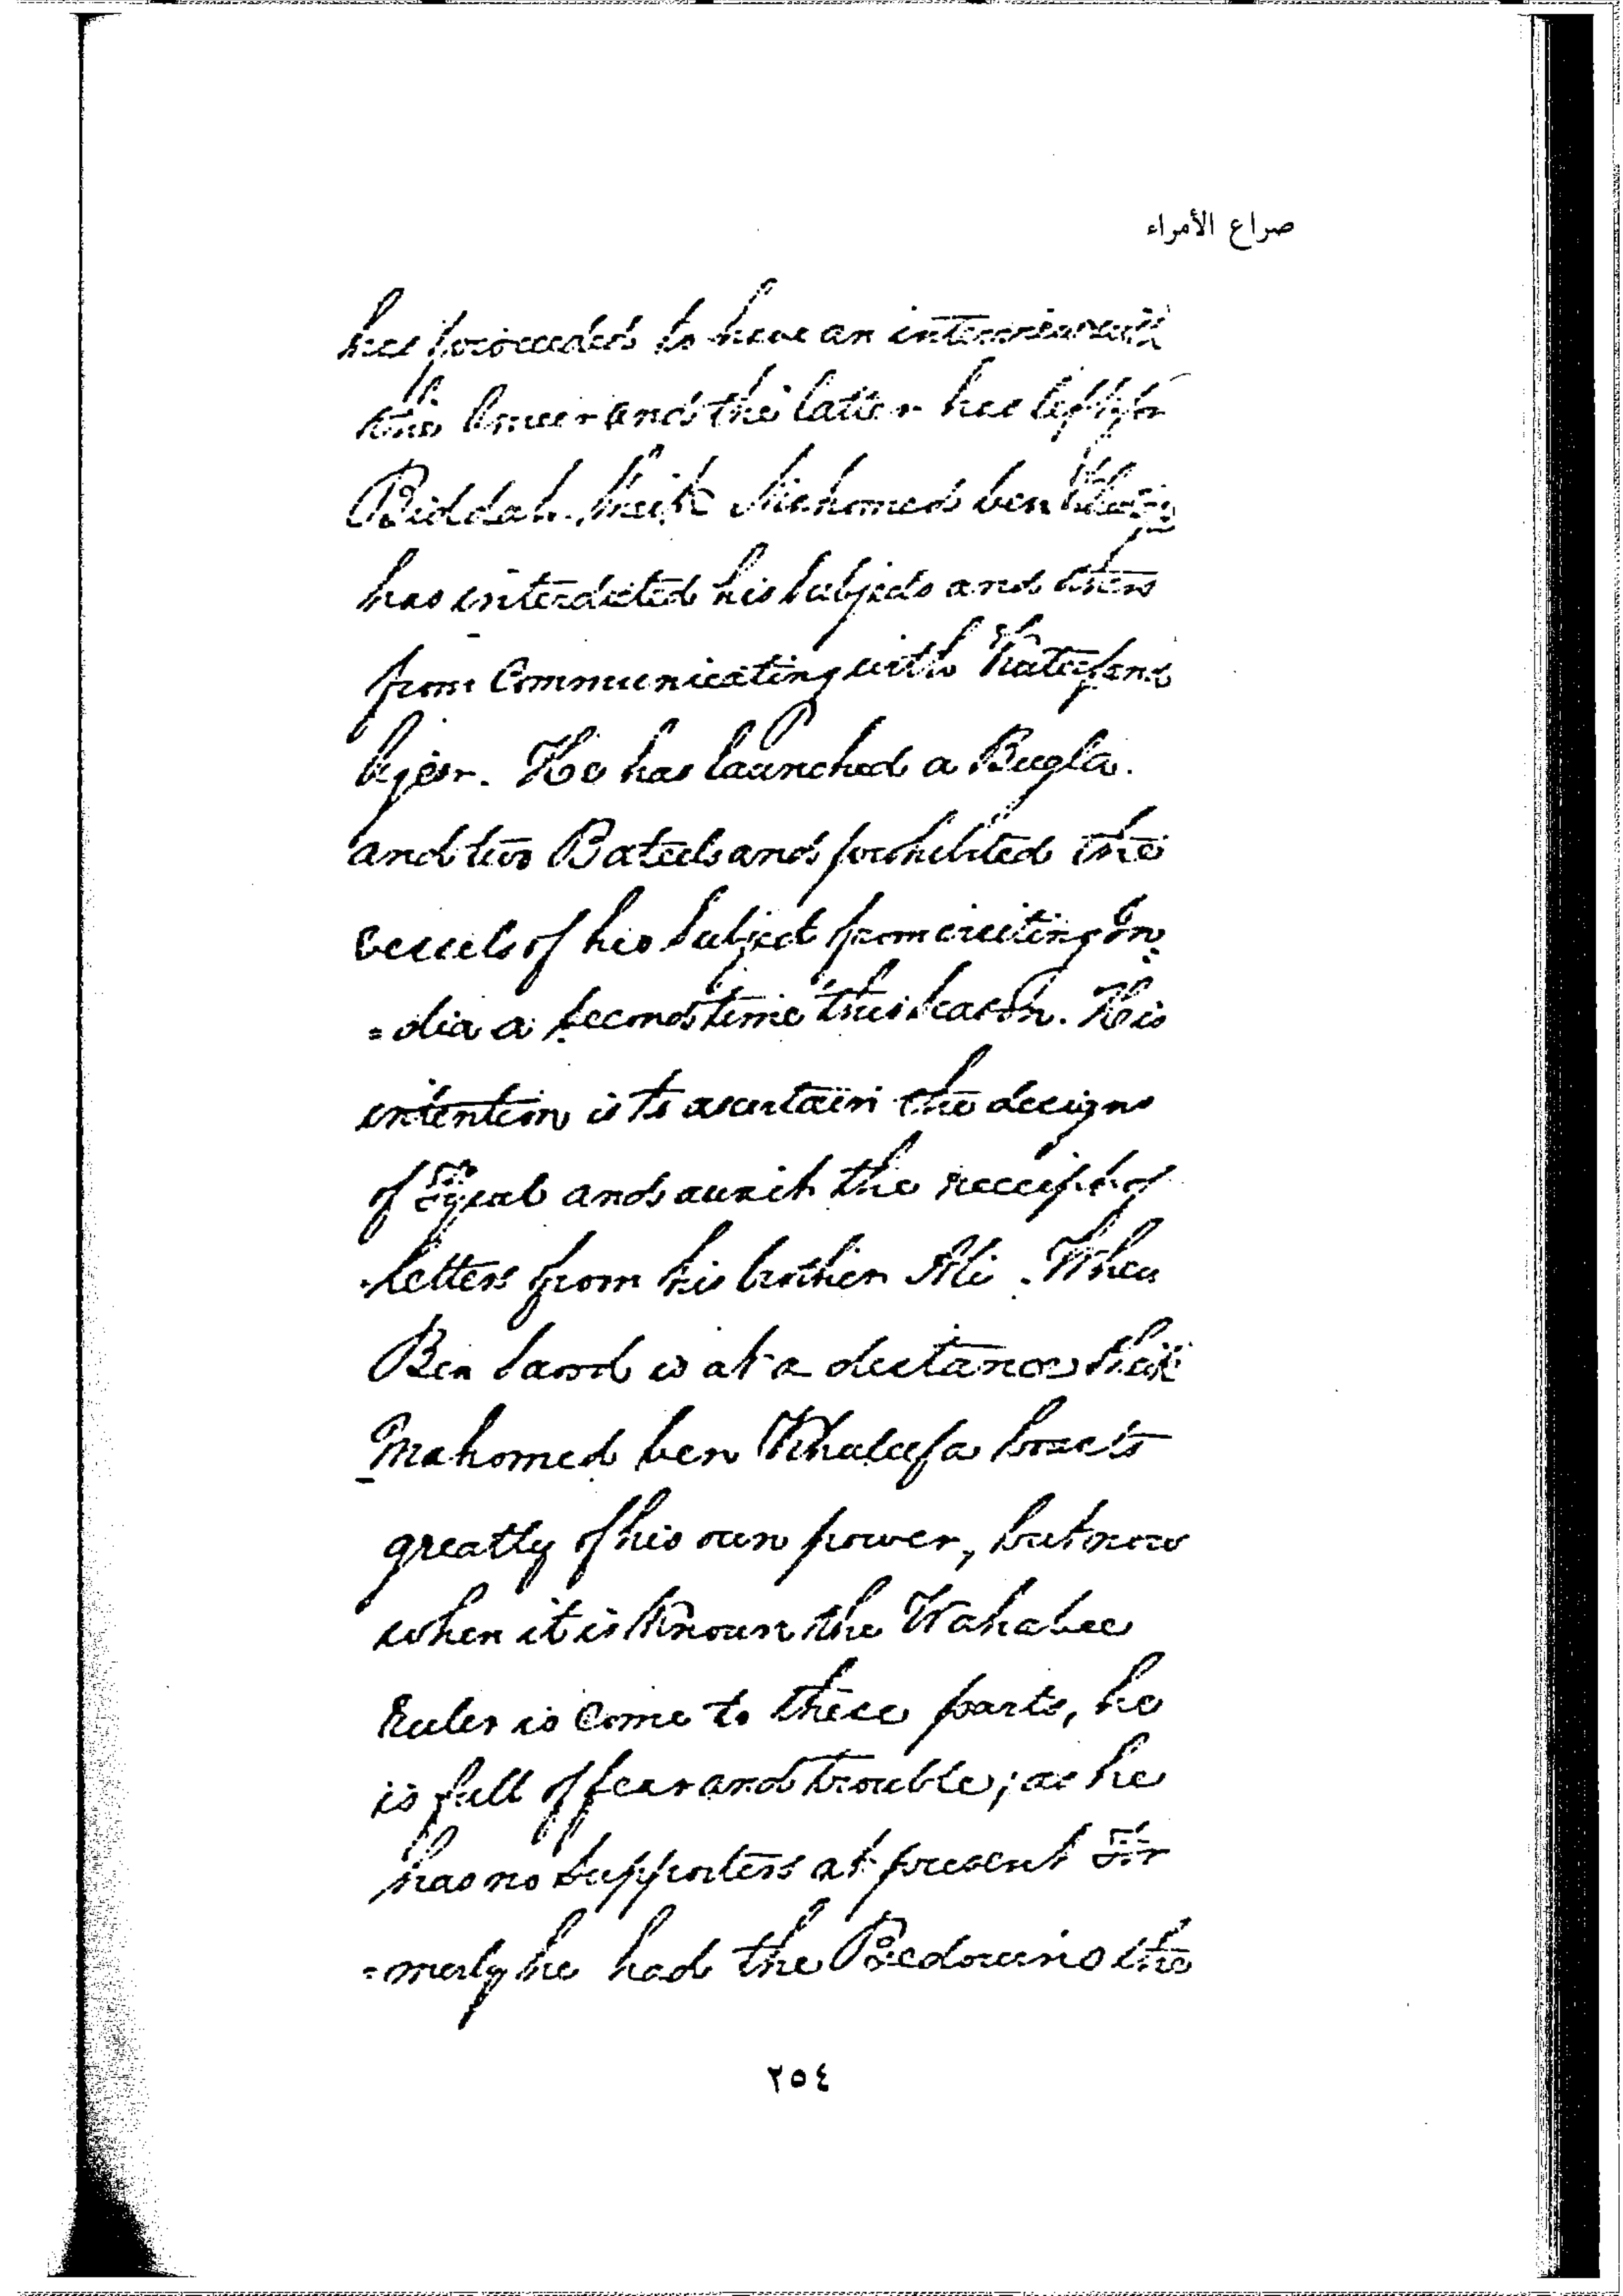 صراع الأمراء
has proceeded to have an interview with
this Ameer and the latter has left for
Biddah. Sheik Mahomed ben
has interdicted his subjects and others
from Communicating with Kateef and
Ajeer. He has launched a Bugla
and two Bateels and prohibited the
vessels of his subject from visiting In-
=dia a second time this season. His
intention is to ascertain the designs
of and await the receipt of
letters from his brother Ali. When
Bin Saood is at a distance Sheik
Mahomed ben Khaleefa boasts
greatly of his own power, but now
when it is known the Wahabee
ruler is come to these parts, he
is full of fear and trouble; as he
has no supporters at present For
=merly he had the Bedouins the
٢٥٤